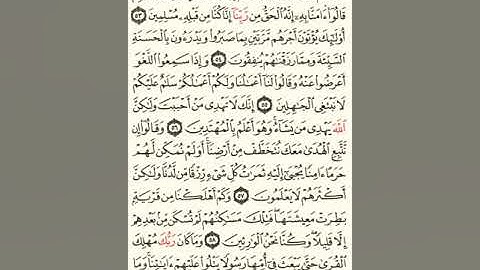 قَالُوٓا۟ ءَامَنَّا بِهِۦٓ إِنَّهُ ٱلْحَقُّ مِن رَّبِّنَآ إِنَّا كُنَّا مِن قَبْلِهِۦ مُسْلِمِينَ ٥٣
أُو۟لَٰٓئِكَ يُؤْتَوْنَ أَجْرَهُم مَّرَّتَيْنِ بِمَا صَبَرُوا۟ وَيَدْرَءُونَ بِٱلْحَسَنَةِ
ٱلسَّيِّئَةَ وَمِمَّا رَزَقْنَٰهُمْ يُنفِقُونَ ٥٤ وَإِذَا سَمِعُوا۟ ٱللَّغْوَ
أَعْرَضُوا۟ عَنْهُ وَقَالُوا۟ لَنَآ أَعْمَٰلُنَا وَلَكُمْ أَعْمَٰلُكُمْ سَلَٰمٌ عَلَيْكُمْ
لَا نَبْتَغِى ٱلْجَٰهِلِينَ ٥٥ إِنَّكَ لَا تَهْدِى مَنْ أَحْبَبْتَ وَلَٰكِنَّ
ٱللَّهَ يَهْدِى مَن يَشَآءُ وَهُوَ أَعْلَمُ بِٱلْمُهْتَدِينَ ٥٦ وَقَالُوٓا۟ إِن
نَّتَّبِعِ ٱلْهُدَىٰ مَعَكَ نُتَخَطَّفْ مِنْ أَرْضِنَآ أَوَلَمْ نُمَكِّن لَّهُمْ
حَرَمًا ءَامِنًا يُجْبَىٰٓ إِلَيْهِ ثَمَرَٰتُ كُلِّ شَىْءٍ رِّزْقًا مِّن لَّدُنَّا وَلَٰكِنَّ
أَكْثَرَهُمْ لَا يَعْلَمُونَ ٥٧ وَكَمْ أَهْلَكْنَا مِن قَرْيَةٍۭ
بَطِرَتْ مَعِيشَتَهَا فَتِلْكَ مَسَٰكِنُهُمْ لَمْ تُسْكَن مِّنۢ بَعْدِهِمْ
إِلَّا قَلِيلًا وَكُنَّا نَحْنُ ٱلْوَٰرِثِينَ ٥٨ وَمَا كَانَ رَبُّكَ مُهْلِكَ
ٱلْقُرَىٰ حَتَّىٰ يَبْعَثَ فِىٓ أُمِّهَا رَسُولًا يَتْلُوا۟ عَلَيْهِمْ ءَايَٰتِنَا وَمَا